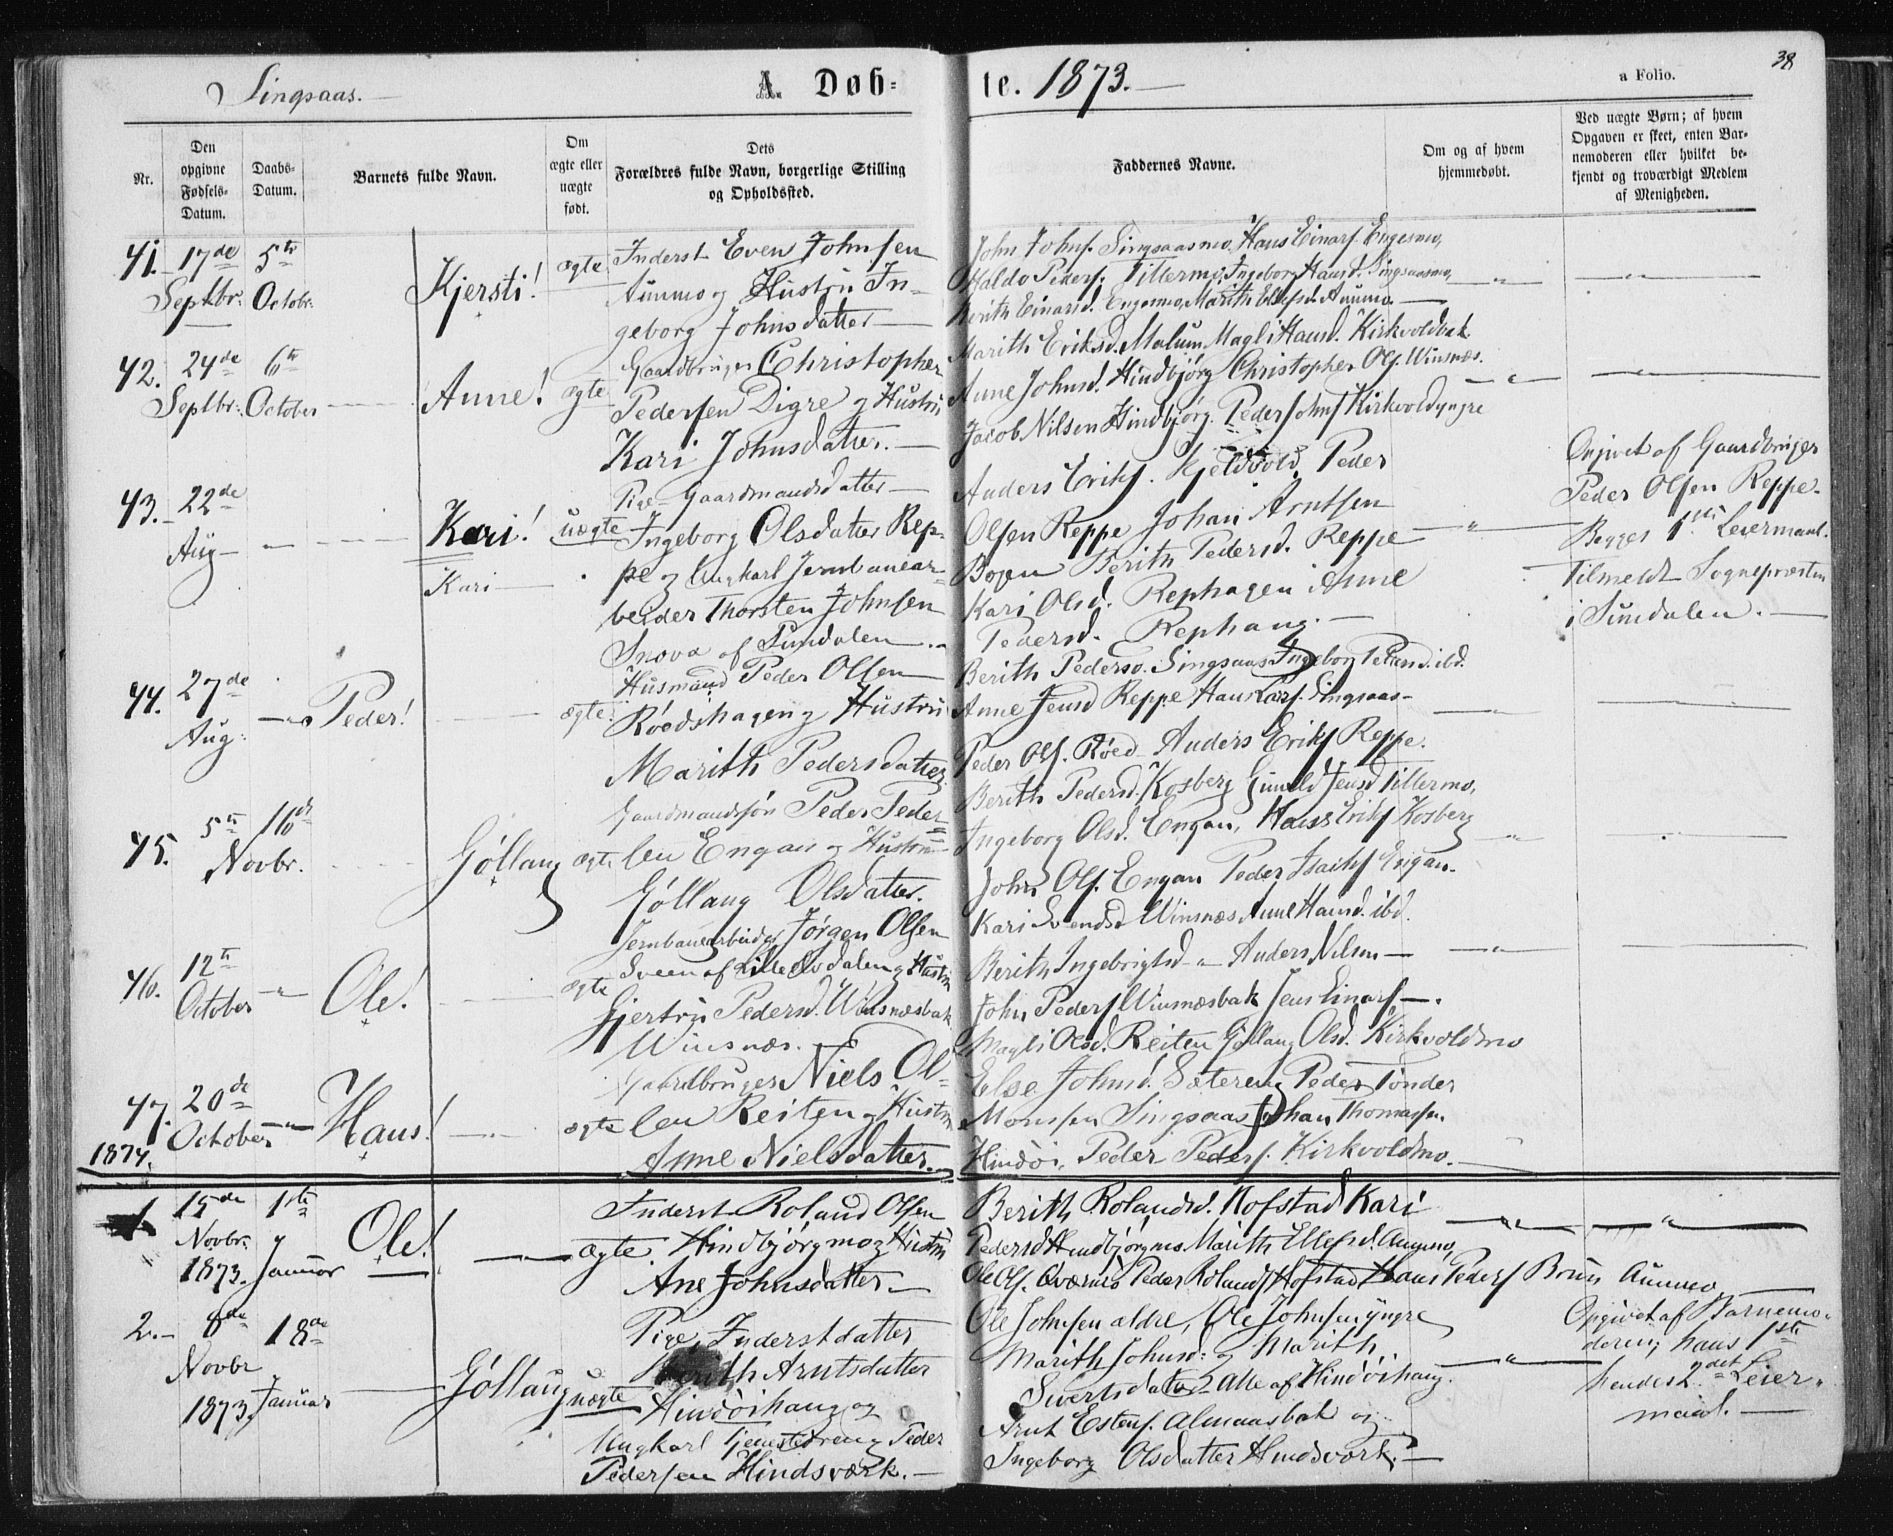 Singsaas.
A. Døb-
te. 1873.
a Folio.
38
Nr.
Den opgivne Fødsels-Datum.
Daabs-Datum.
Barnets fulde Navn.
Om ægte eller uægte født.
Dets Forældres fulde Navn, borgerlige Stilling og Opholdssted.
Faddernes Navne.
Om og af hvem hjemmedøbt.
Ved uægte Børn; af hvem Opgaven er skeet, enten Barnemoderen eller hvilket bekjendt og troværdigt Medlem af Menigheden.
41. 17de Septbr. 5te Octobr. Kjersti! ægte
Inderst Even Johnsen
Aunmo og Hustru In-
geborg Johnsdatter
John Johns. Singsaasmo, Hans Einars. Engesmo,
Haldo Peders. Tillermo, Ingeborg Hansd. Singsaasmo,
Berith Einarsd. Engesmo, Marith Ellefsd. Aunmo.
42. 24de Septbr. 6te October Anne! ægte
Gaardbruger Christopher
Pedersen Digre og Hustru
Kari Johnsdatter.
Marith Eriksd. Malum, Magli Hansd. Kirkvoldbak
Anne Johnsd. Hindbjørg Christopher Ols. Winsnæs.
Jacob Nilsen Hindbjørg. Peder Johns Kirkvold yngre
43. 22de Aug Kari! uægte
Kari
Pige Gaardmandsdatter
Ingeborg Olsdatter Rep-
pe og Ungkarl Jernbanear-
beider Thorsten Johnsen
Snova af Sundalen
Anders Eriks. Kjeldvold Peder
Olsen Reppe Johan Arntsen
Bogen Berith Pedersd. Reppe
Kari Olsd. Rephagen Anne
Pedersd. Rephaug.
Opgivet af Gaardbruger
Peder Olsen Reppe.
Begges 1ste Leiermaal.
Tilmeldt Sognepræsten
i Sundalen.
44. 27de Aug. Peder! ægte
Husmand Peder Olsen
Røedshagen og Hustru
Marith Pedersdatter
Berith Pedersd. Singsaas Ingeborg Pedersd. ibd.
Anne Jensd Reppe Hans Lars. Singsaas
Peder Ols. Røed Anders Eriks Reppe.
45. 5te 16de Novbr. Gøllaug ægte
Gaardmandssøn Peder Peder-
sen Engan og Hustru
Gøllaug Olsdatter.
Berith Pedersd. Kosberg Gunild Jensd Tillermo,
Ingeborg Olsd. Engan, Hans Eriks Kosberg
John Ols. Engan Peder Isachs Engan.
46. 12te October Ole! ægte
Jernbanearbeider Jørgen Olsen
Sveen af Lille Elvdalen og Hustru
Gjertru Pedersd. Winsnæsbak
Winsnæs.
Kari Svendsd Winsnæs Anne Hansd. ibd.
Berith Ingebrigtsd Anders Nilsen
John Peders Winsnæsbak Jens Einars
47. 20de October Hans! ægte
Gaardbruger Niels Ol-
sen Reiten og Hustru
Anne Nielsdatter.
Magli Olsd. Reiten Gøllaug Olsd. Kirkvoldmo
Else Johnsd. Sætereng Peder Tønder
Monsen Singsaas Johan Thomassen
Hindøi, Peder Peders. Kirkvoldmo.
1874.
1 15de Novbr. 1873. 1ste Januar Ole! ægte
Inderst Roland Olsen
Hindbjørgmo og Hustru
Ane Johnsdatter
Berith Rolandsd. Hofstad Kari
Pedersd Hindbjørgmo Marith Ellefsd. Aunmo,
Ole Ols. Qværnes Peder Rolands Hofstad Hans Peders Bruun Aunmo
2. 8de Novbr 1873. 18de Januar Gøllaug uægte
Pige, Inderstdatter
Berith Arntsdatter
Hindøihaug og
Ungkarl Tjenestedreng Peder
Pedersen Hindsværk.
Ole Johnsen ældre, Ole Johnsen yngre
Marith Johnsd: og Marith
Sivertsdatter alle af Hindøihaug.
Arnt Estens. Almaasbak og
Ingeborg Olsdatter Hindsværk.
Opgivet af Barnemo-
deren; hans 1ste
hendes 2det Leier-
maal.